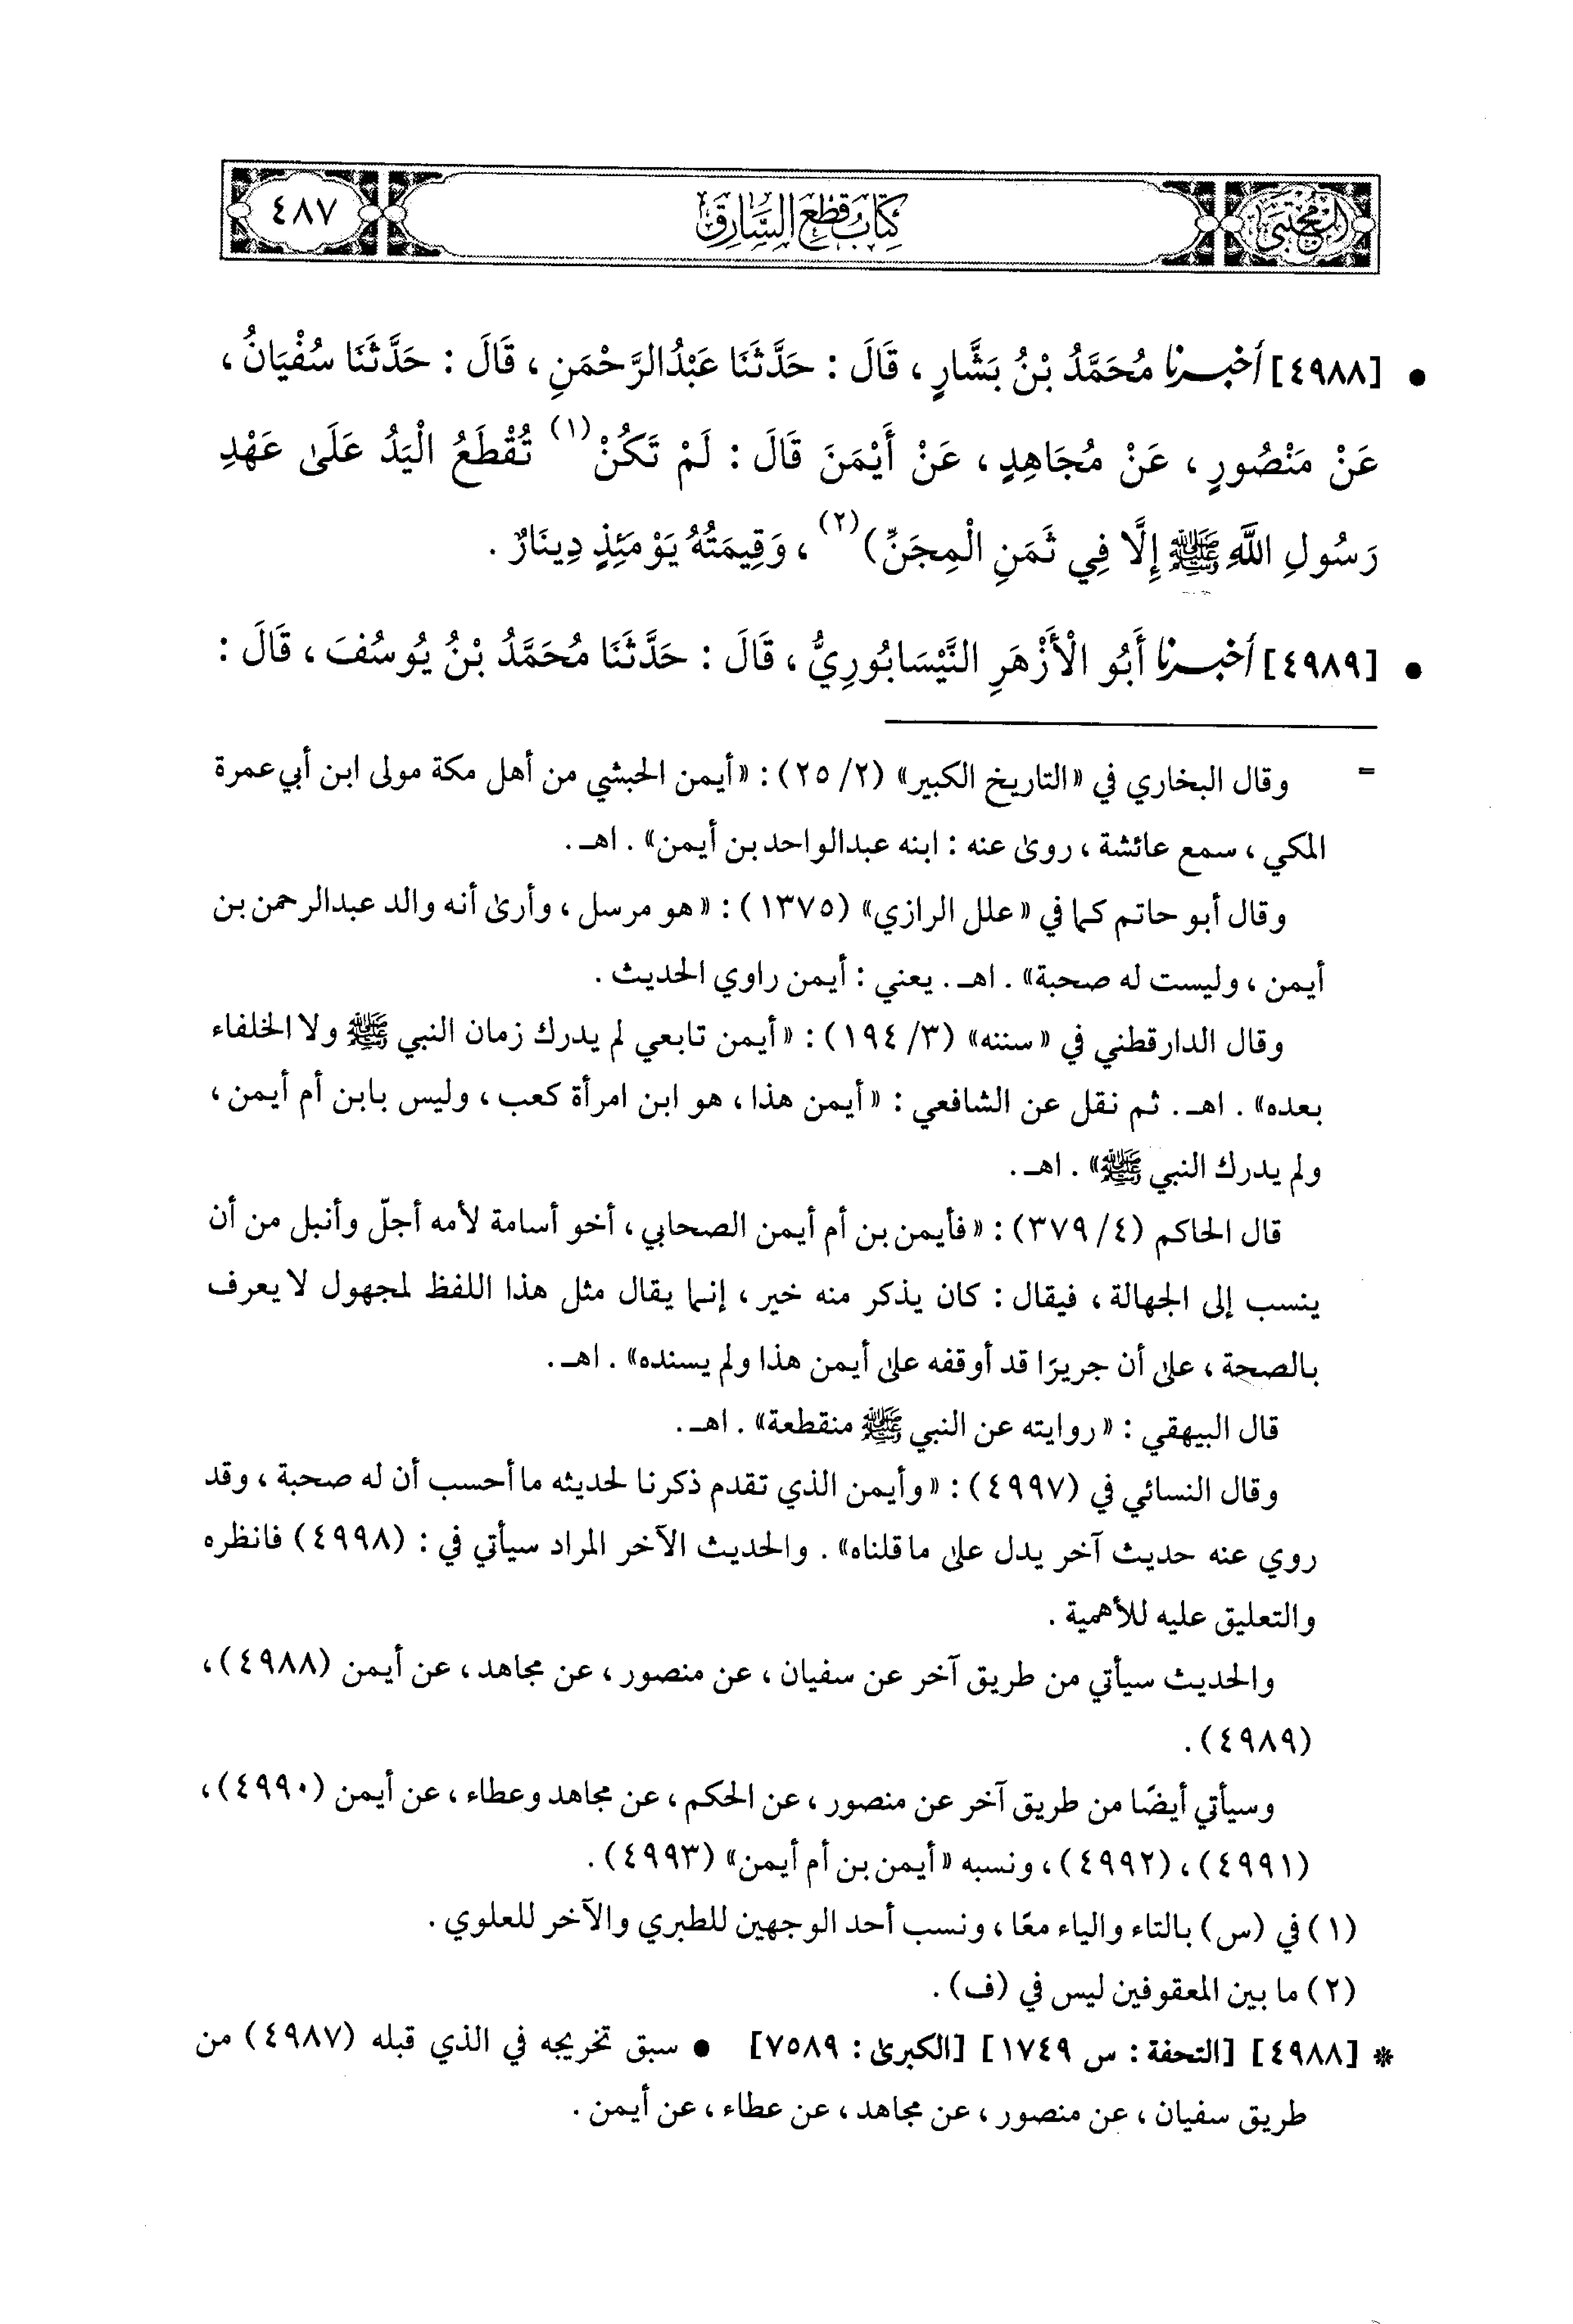 المجتبى
كتاب قطع السارق
٤٨٧
• [٤٩٨٨] أخبرنا مُحَمَّدُ بْنُ بَشَّارٍ ، قَالَ : حَدَّثَنَا عَبْدُالرَّحْمَنِ ، قَالَ : حَدَّثَنَا سُفْيَانُ ،
عَنْ مَنْصُورٍ ، عَنْ مُجَاهِدٍ ، عَنْ أَيْمَنَ قَالَ : لَمْ تَكُنْ(١) تُقْطَعُ الْيَدُ عَلَىٰ عَهْدِ
رَسُولِ اللَّهِ ﷺ إِلَّا فِي ثَمَنِ الْمِجَنِّ)(٢) ، وَقِيمَتُهُ يَوْمَئِذٍ دِينَارٌ .
• [٤٩٨٩] أخبرنا أَبُو الْأَزْهَرِ النَّيْسَابُورِيُّ ، قَالَ : حَدَّثَنَا مُحَمَّدُ بْنُ يُوسُفَ ، قَالَ :
= وقال البخاري في «التاريخ الكبير» (٢/ ٢٥) : «أيمن الحبشي من أهل مكة مولى ابن أبي عمرة
المكي ، سمع عائشة ، روىٰ عنه : ابنه عبدالواحد بن أيمن» . اهـ .
وقال أبو حاتم كما في «علل الرازي» (١٣٧٥) : «هو مرسل ، وأرىٰ أنه والد عبدالرحمن بن
أيمن ، وليست له صحبة» . اهـ . يعني : أيمن راوي الحديث .
وقال الدارقطني في «سننه» (٣/ ١٩٤) : «أيمن تابعي لم يدرك زمان النبي ﷺ ولا الخلفاء
بعده» . اهـ . ثم نقل عن الشافعي : «أيمن هذا ، هو ابن امرأة كعب ، وليس بابن أم أيمن ،
ولم يدرك النبي ﷺ» . اهـ .
قال الحاكم (٤/ ٣٧٩) : «فأيمن بن أم أيمن الصحابي ، أخو أسامة لأمه أجلّ وأنبل من أن
ينسب إلى الجهالة ، فيقال : كان يذكر منه خير ، إنما يقال مثل هذا اللفظ لمجهول لا يعرف
بالصحة ، على أن جريرًا قد أوقفه على أيمن هذا ولم يسنده» . اهـ .
قال البيهقي : «روايته عن النبي ﷺ منقطعة» . اهـ .
وقال النسائي في (٤٩٩٧) : «وأيمن الذي تقدم ذكرنا لحديثه ما أحسب أن له صحبة ، وقد
روي عنه حديث آخر يدل على ما قلناه» . والحديث الآخر المراد سيأتي في : (٤٩٩٨) فانظره
والتعليق عليه للأهمية .
والحديث سيأتي من طريق آخر عن سفيان ، عن منصور ، عن مجاهد ، عن أيمن (٤٩٨٨) ،
(٤٩٨٩) .
وسيأتي أيضًا من طريق آخر عن منصور ، عن الحكم ، عن مجاهد وعطاء ، عن أيمن (٤٩٩٠) ،
(٤٩٩١) ، (٤٩٩٢) ، ونسبه «أيمن بن أم أيمن» (٤٩٩٣) .
(١) في (س) بالتاء والياء معًا ، ونسب أحد الوجهين للطبري والآخر للعلوي .
(٢) ما بين المعقوفين ليس في (ف) .
* [٤٩٨٨] [التحفة : س ١٧٤٩] [الكبرىٰ : ٧٥٨٩] • سبق تخريجه في الذي قبله (٤٩٨٧) من
طريق سفيان ، عن منصور ، عن مجاهد ، عن عطاء ، عن أيمن .